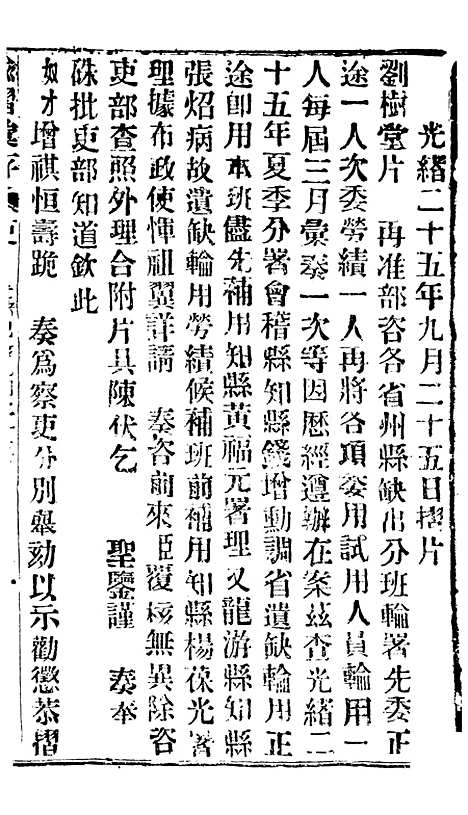 光緒二十五年九月二十五日摺片
劉樹堂片 再准部咨各省州縣缺出分班輪署先委正
途一人次委勞績一人再將各項委用試用人員輪用一
人每屆三月彙奏一次等因歷經遵辦在案茲查光緒二
十五年夏季分署會稽縣知縣錢增勳調省遺缺輪用正
途卽用本班儘先補用知縣黃福元署理又龍游縣知縣
張炤病故遺缺輪用勞績候補班前補用知縣楊葆光署
理據布政使惲祖翼詳請 奏咨前來臣覆核無異除咨
吏部查照外理合附片具陳伏乞 聖鑒謹 奏奉
硃批吏部知道欽此
奴才增祺恒壽跪 奏爲察吏分別舉劾以示勸懲恭摺